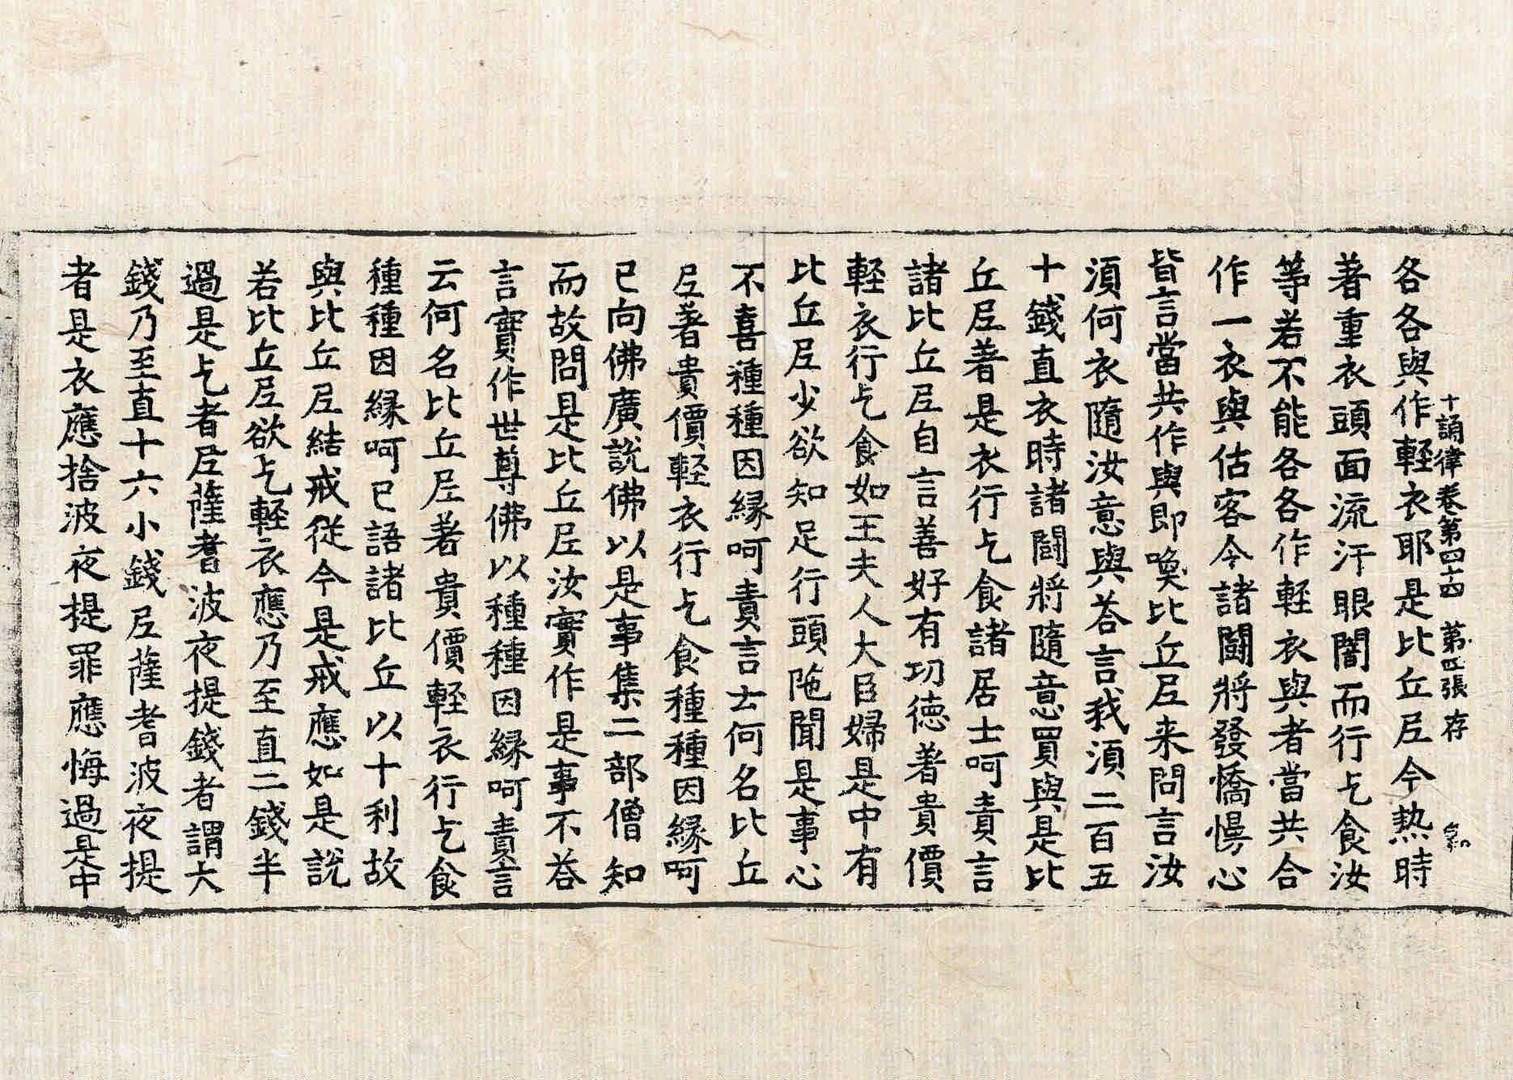 十誦律卷第四十四　第四張　存
各各與作輕衣耶是比丘尼今熱時
著重衣頭面流汗眼闇而行乞食汝
等若不能各各作輕衣與者當共合
作一衣與估客今諸闘將發憍慢心
皆言當共作與即喚比丘尼来問言汝
須何衣隨汝意與荅言我須二百五
十錢直衣時諸闘將隨意買與是比
丘尼著是衣行乞食諸居士呵責言
諸比丘尼自言善好有功德著貴價
輕衣行乞食如王夫人大臣婦是中有
比丘尼少欲知足行頭陁聞是事心
不喜種種因緣呵責言云何名比丘
尼著貴價輕衣行乞食種種因緣呵
已向佛廣說佛以是事集二部僧知
而故問是比丘尼汝實作是事不荅
言實作世尊佛以種種因緣呵責言
云何名比丘尼著貴價輕衣行乞食
種種因緣呵已語諸比丘以十利故
與比丘尼結戒從今是戒應如是說
若比丘尼欲乞輕衣應乃至直二錢半
過是乞者尼薩耆波夜提錢者謂大
錢乃至直十六小錢尼薩耆波夜提
者是衣應捨波夜提罪應悔過是中